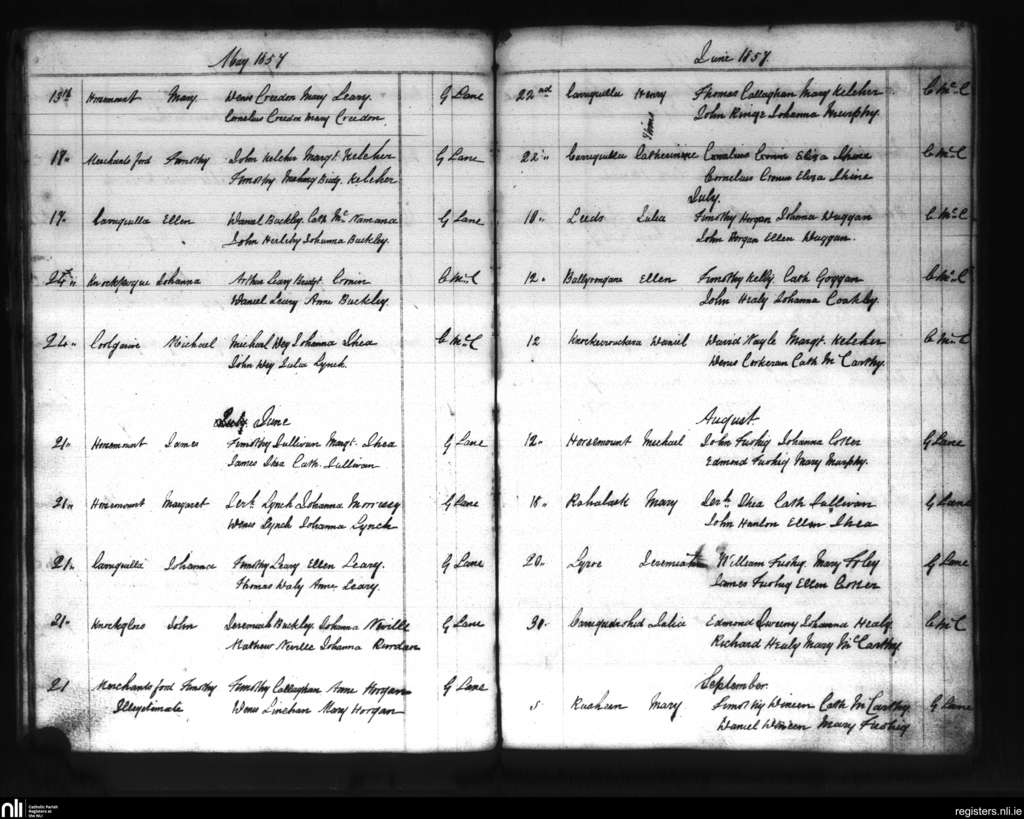 May 1857
13th Horsemount Mary Denis Creedon Mary Leary. G Lane
Cornelius Creedon Mary Creedon.
17" Merchants ford Timothy John Kelcher Margt. Kelcher G Lane
Timothy Mahony Bridg. Kelcher
17" Carriguilla Ellen Daniel Buckley Cath Mc Namana G Lane
John Herlihy Johanna Buckley.
24" Knockpogue Johanna Arthur Leary Bridgt. Cronin C Mc.C
Daniel Leary Anne Buckley.
24" Coolgarriv Michael Michael Dey Johanna Shea C Mc.C
John Dey Julia Lynch.
June
21" Horsemount James Timothy Sullivan Margt. Shea G Lane
James Shea Cath. Sullivan
21" Horsemount Margaret Jerh. Lynch Johanna Morrissey G Lane
Denis Lynch Johanna Lynch
21" Carriguilla Johanna Timothy Leary Ellen Leary. G Lane
Thomas Daly Anne Leary.
21" Knockglass John Jeremiah Buckley Johanna Neville G Lane
Mathew Neville Johanna Riordan
21 Merchants ford Timothy Timothy Callaghan Anne Horgan G Lane
Illegitimate Denis Linehan Mary Horgan
June 1857
22nd Carriguilla Henry Thomas Callaghan Mary Kelcher C Mc.C
John Ring Johanna Murphy.
22" Carriguilla Catherine Cornelius Cronin Eliza Shine C Mc.C
Cornelius Cronin Eliza Shine
July.
10" Leeds Julia Timothy Horgan Johanna Duggan C Mc.C
John Horgan Ellen Duggan.
12" Ballyrongane Ellen Timothy Kelly Cath Goggan C Mc.C
John Healy Johanna Coakley.
12 Daniel David Nagle Margt. Kelcher C Mc.C
Denis Corkeran Cath McCarthy.
August.
12" Horsemount Michael John Tuohig Johanna Cotter G Lane
Edmond Tuohig Mary Murphy.
15" Rahalisk Mary Jerh. Shea Cath Sullivan G Lane
John Hanlon Ellen Shea
20" Lyroe Jeremiah William Tuohig. Mary Foley G Lane
James Tuohig Ellen Cotter
30" Carriguashid Julia Edmond Sweeny Johanna Healy C McC
Richard Healy Mary McCarthy
September.
5 Rusheen Mary Timothy Dineen Cath McCarthy G Lane
Daniel Dineen Mary Tuohig
nli Catholic Parish
Registers at
the NLI
registers.nli.ie